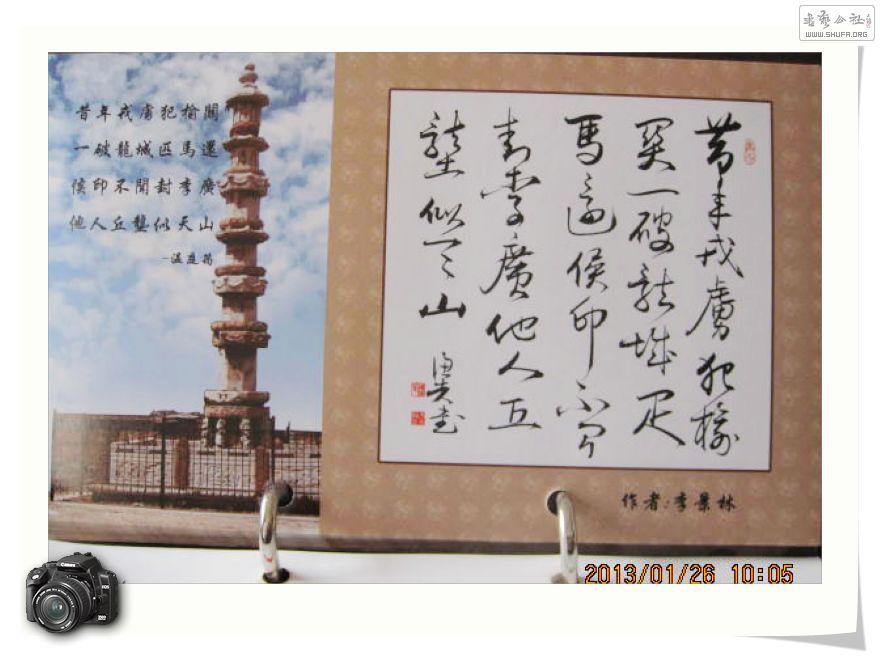 昔年戎虜犯榆關
一破龍城匹馬還
侯印不聞封李廣
他人丘壟似天山
-溫庭筠
昔年戎虜犯榆
關一破龍城匹
馬還侯印不聞
封李廣他人丘
壟似天山
作者:李景林
2013/01/26 10:05
书艺公社
WWW.SHUFA.ORG
Canon